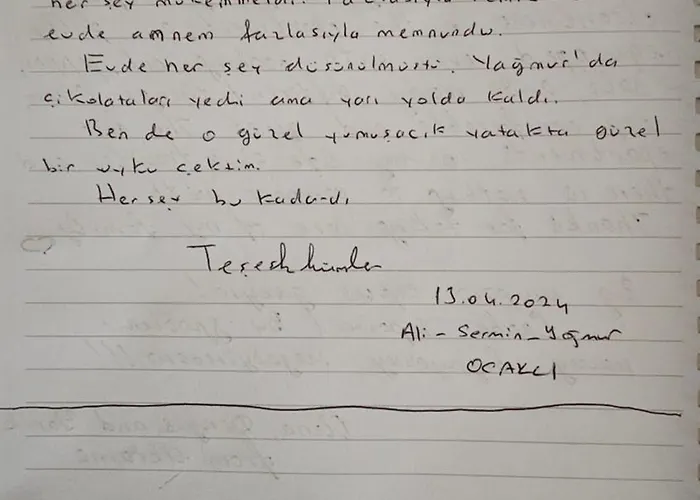 her şey mükemmeldi.
evde annem fazlasıyla memnundu.
Evde her şey düşünülmüştü. Yağmur'da
çikolataları yedi ama yarı yolda kaldı.
Ben de o güzel yumuşacık yatakta güzel
bir uyku çektim.
Herşey bu kadardı.
Teşekkürler
13.04.2024
Ali - Sermin - Yağmur
OCAKLI